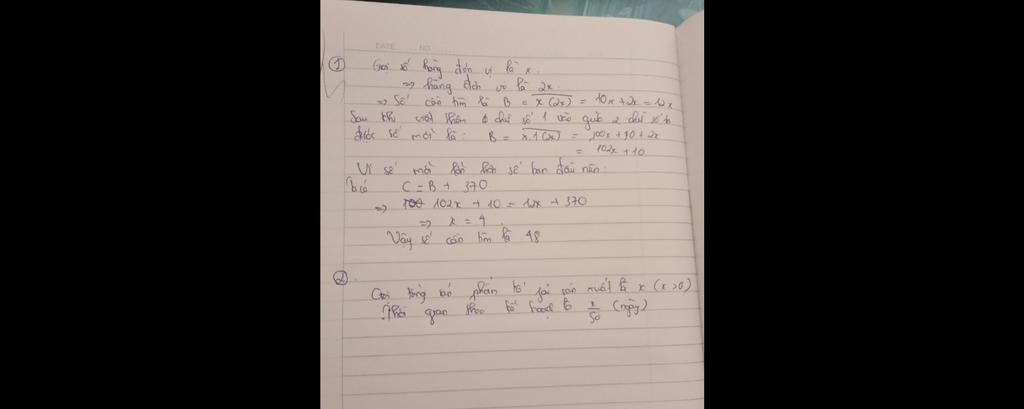 DATE NO
① Gọi số hàng đơn vị là x.
=> hàng là 2x
=> Số cần tìm là B = x(2x) = 10x + 2x = 12x
Sau khi viết thêm chữ số 1 vào giữa 2 chữ số ta
được số mới là: B = x.1(2x) = 100x + 10 + 2x
= 102x + 10
Vì số mới lớn hơn số ban đầu nên
Ta có C = B + 370
=> 102x + 10 = 12x + 370
=> x = 4.
Vậy số cần tìm là 48
②
Gọi tổng phải sản xuất là x (x > 0)
Thời gian theo kế hoạch là x/50 (ngày)